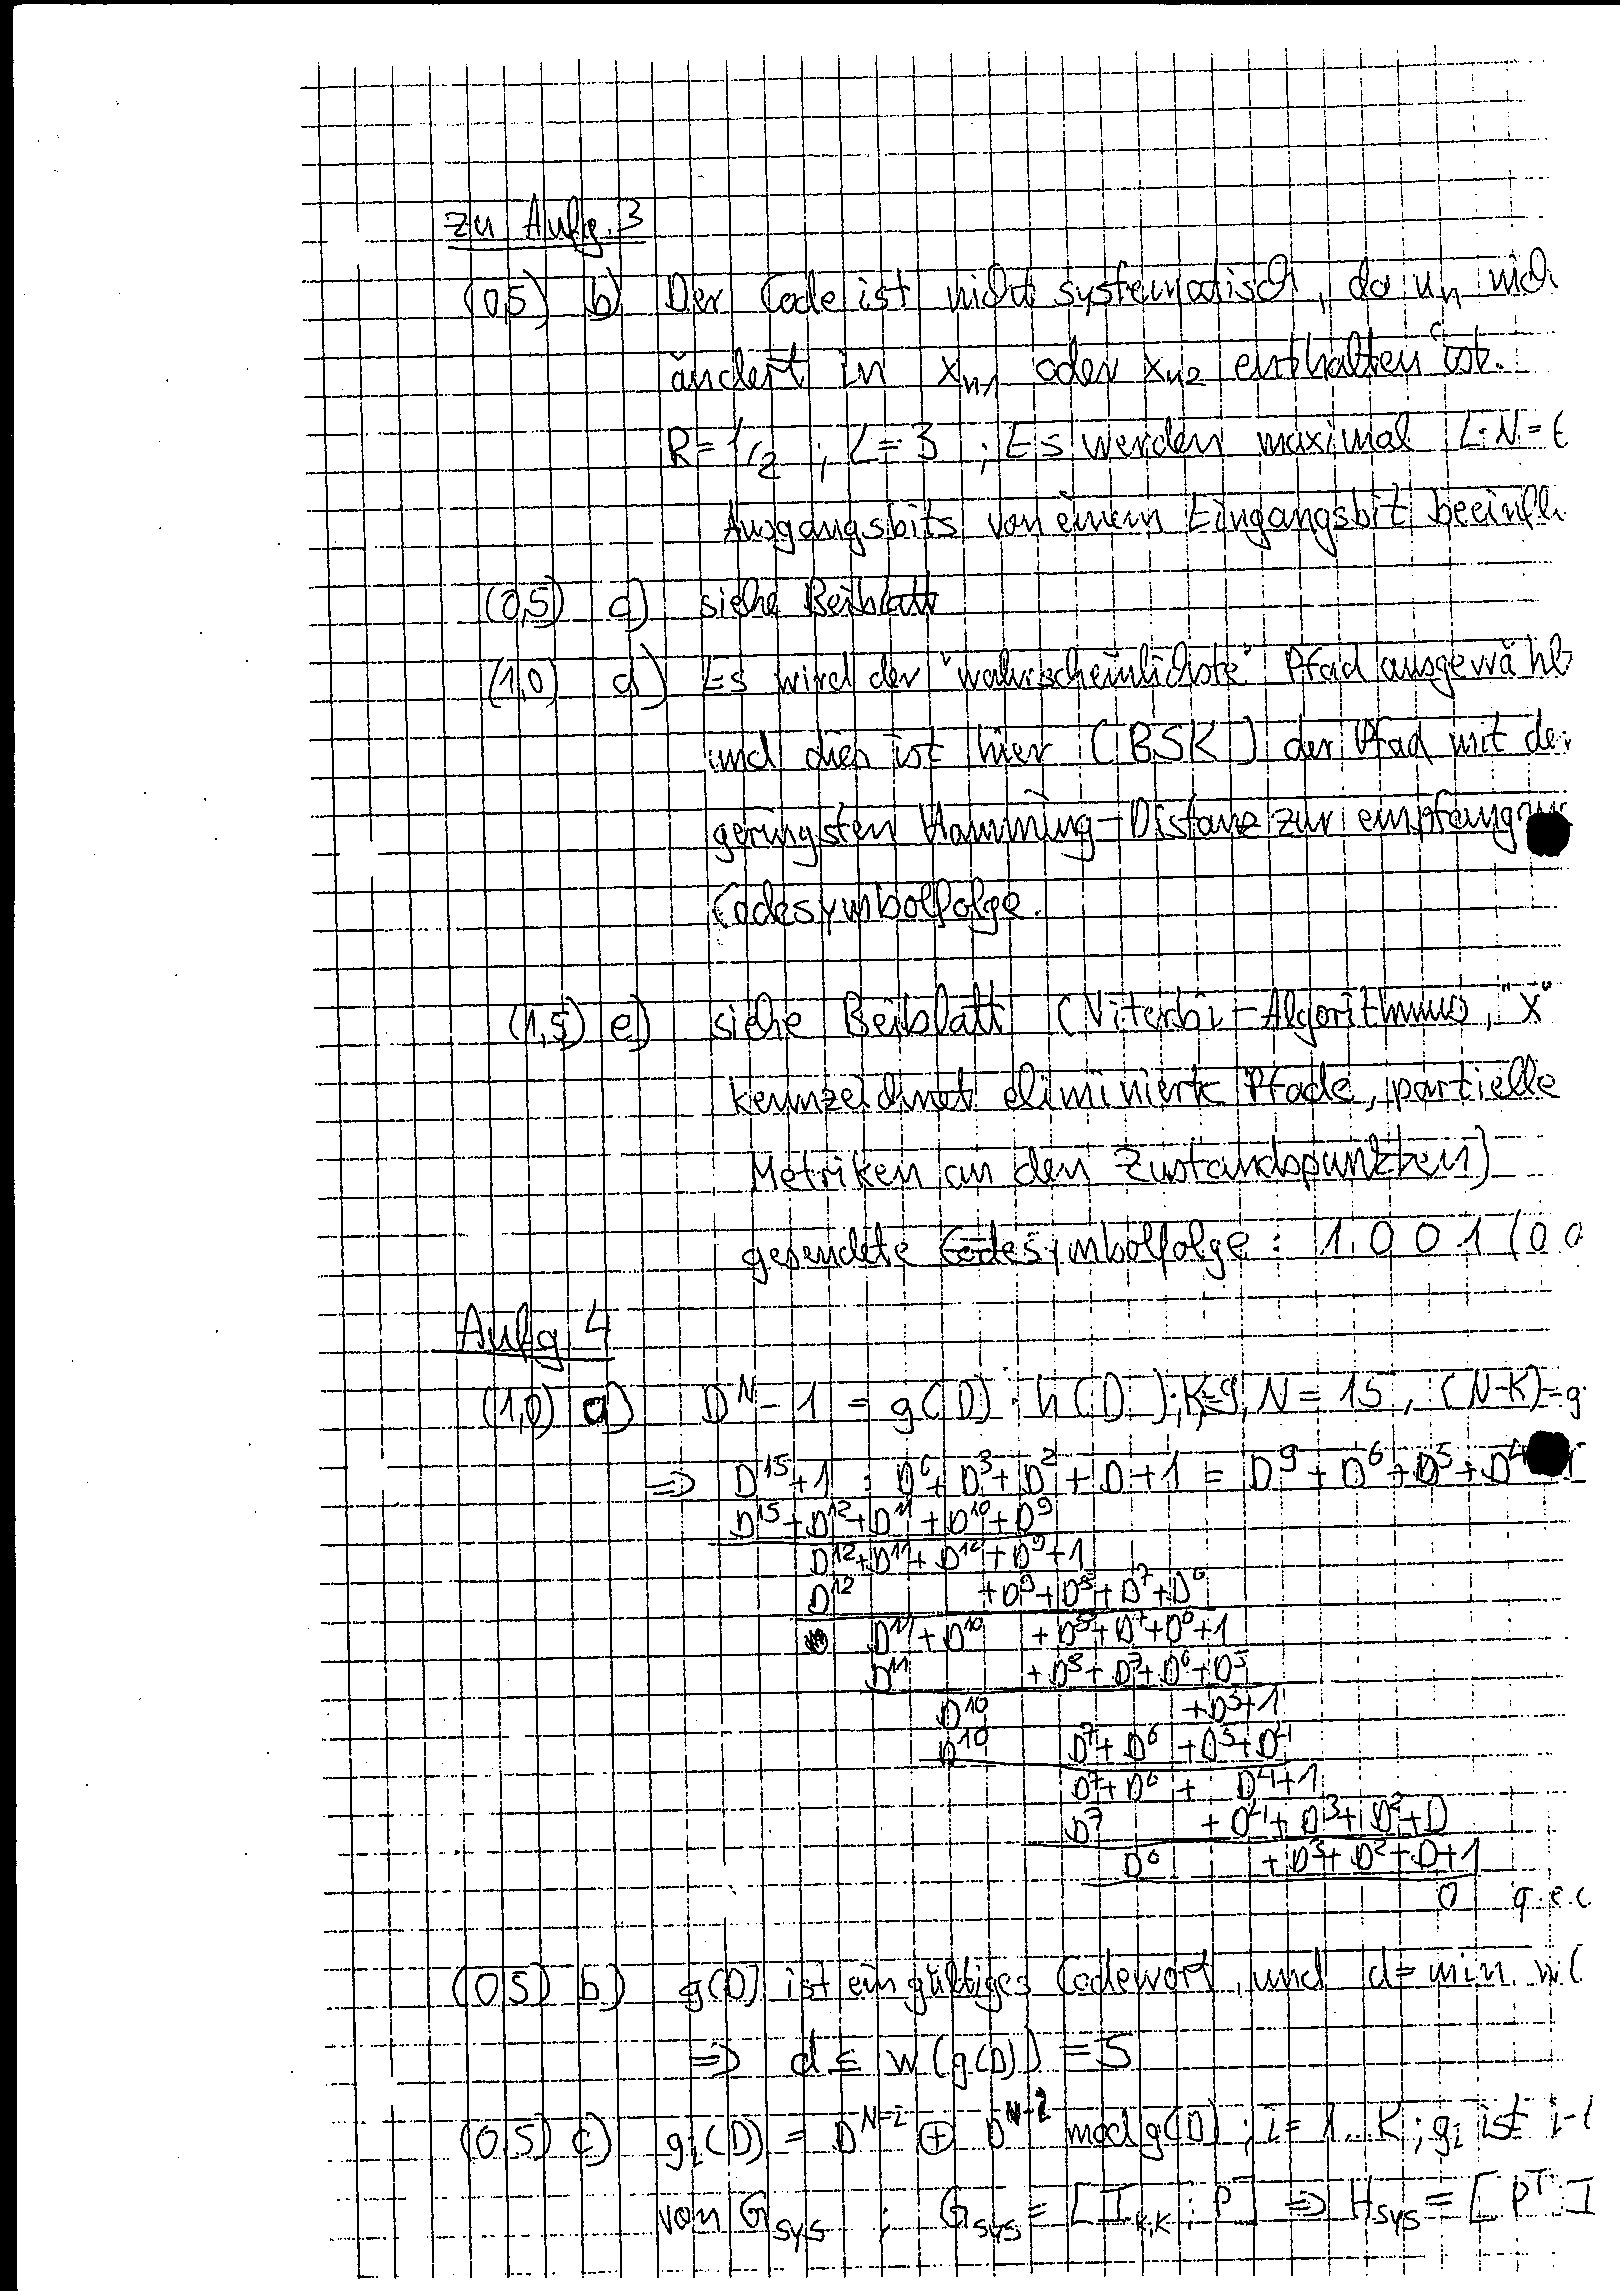 zu Aufg. 3
(0,5) b) Der Code ist nicht systematisch, da un nich
ändert in xn1 oder xn2 enthalten ist.
R = 1/2 ; L = 3 ; Es werden maximal L·N = 6
Ausgangsbits von einem Eingangsbit beeinfl
(0,5) c) siehe Beiblatt
(1,0) d) Es wird der "wahrscheinlichste" Pfad ausgewähl
und dies ist hier (BSK) der Pfad mit der
geringsten Hamming-Distanz zur empfang
Codesymbolfolge.
(1,5) e) siehe Beiblatt (Viterbi-Algorithmus, "X"
kennzeichnet eliminierte Pfade, partielle
Metriken an den Zustandspunkten)
gesendete Codesymbolfolge : 1 0 0 1 (0 0
Aufg 4
(1,0) a) D^N - 1 = g(D) · h(D) ; K=9, N = 15, (N-K) = g
=> D^15 + 1 : D^6 + D^3 + D^2 + D + 1 = D^9 + D^6 + D^5 + D^4
D^15 + D^12 + D^11 + D^10 + D^9
D^12 + D^11 + D^10 + D^9 + 1
D^12 + D^9 + D^8 + D^7 + D^6
D^11 + D^10 + D^8 + D^7 + D^6 + 1
D^11 + D^8 + D^7 + D^6 + D^5
D^10 + D^5 + 1
D^10 D^7 + D^6 + D^5 + D^4
D^7 + D^6 + D^4 + 1
D^7 + D^4 + D^3 + D^2 + D
D^6 + D^3 + D^2 + D + 1
0 q.e.
(0,5) b) g(D) ist ein gültiges Codewort, und d = min. w(
=> d ≤ w(g(D)) = 5
(0,5) c) gi(D) = D^N-i ⊕ D^N-i mod g(D) ; i = 1.. K ; gi ist i-
von Gsys ; Gsys = [IK,K ; P] => Hsys = [P^T ; I